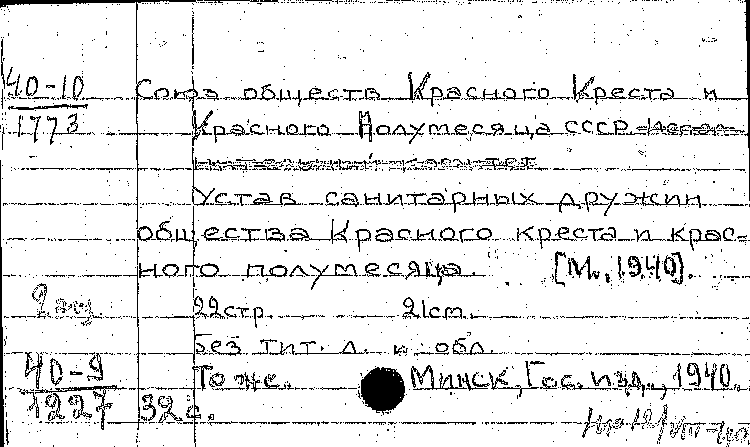 40-10 Союз обществ Красного Креста и
1773 Красного Полумесяца СССР Испол-
нительный комитет
Устав санитарных дружин
общества Красного креста и крас-
ного полумесяца. [М., 1940].
2 экз. 22стр. 21см.
Без тит. л. и обл.
40-9 То же. Минск, Гос. изд., 1940.
1227 32с.